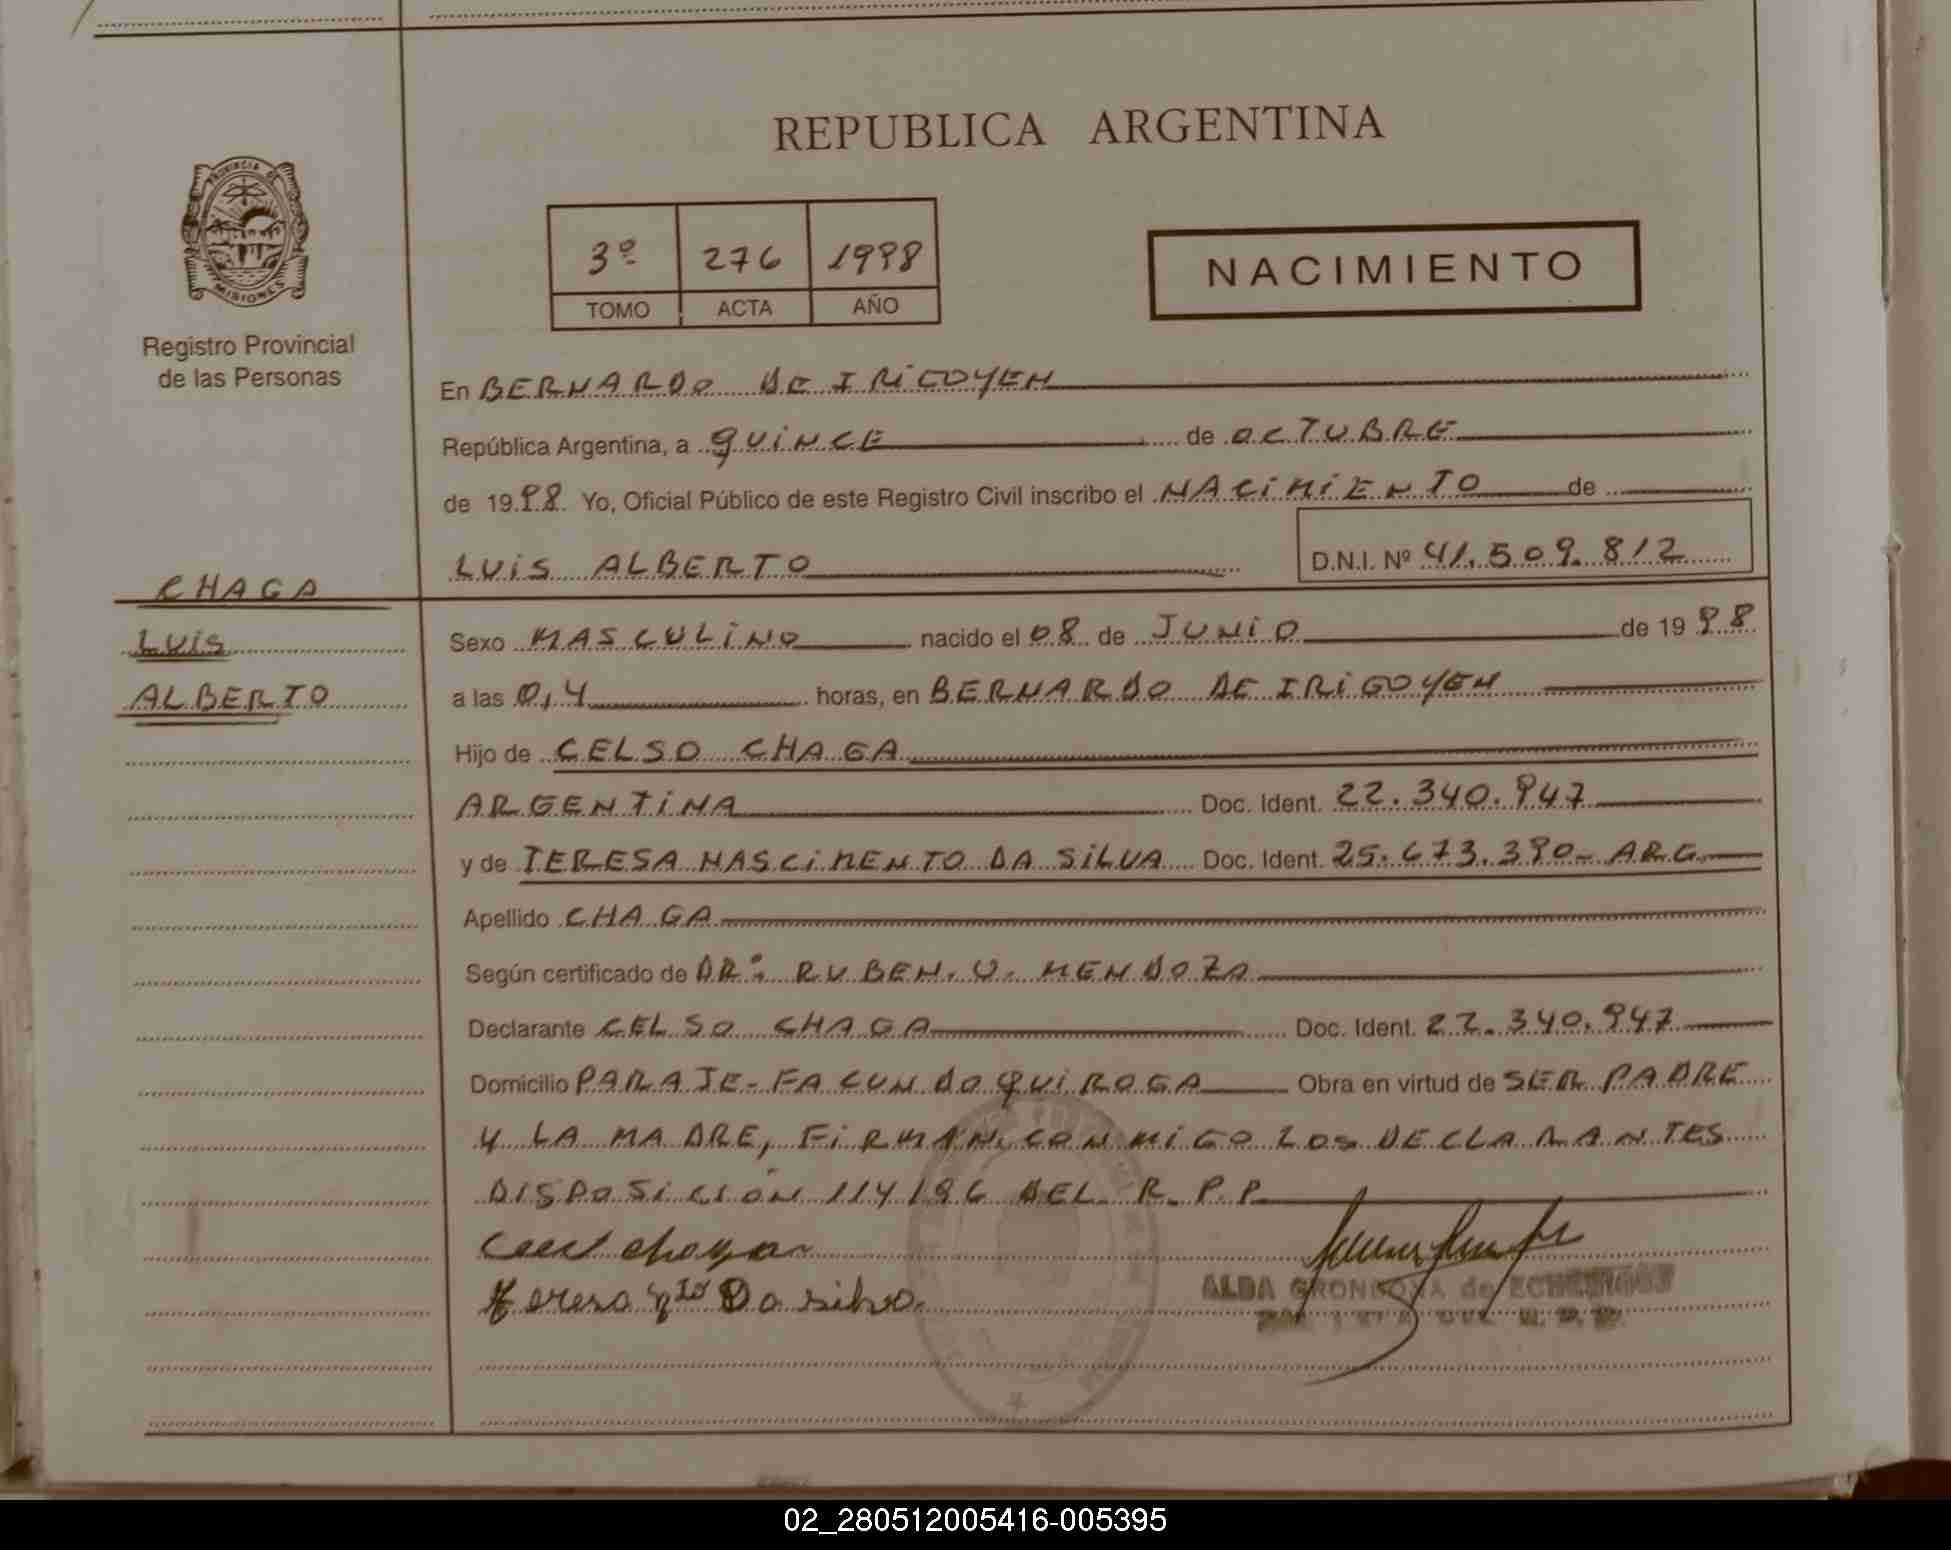 REPUBLICA ARGENTINA
PROVINCIA DE
MISIONES
Registro Provincial
de las Personas
3º 276 1998
TOMO ACTA AÑO
NACIMIENTO
En BERNARDO DE IRIGOYEN
República Argentina, a QUINCE de OCTUBRE
de 1998 Yo, Oficial Público de este Registro Civil inscribo el NACIMIENTO de
LUIS ALBERTO D.N.I. Nº 41.509.812
CHAGA
LUIS
ALBERTO
Sexo MASCULINO nacido el 08 de JUNIO de 1998
a las 0,4 horas, en BERNARDO DE IRIGOYEN
Hijo de CELSO CHAGA
ARGENTINA Doc. Ident. 22.340.947
y de TERESA NASCIMENTO DA SILVA Doc. Ident. 25.673.390- ARG.
Apellido CHAGA
Según certificado de DR: RUBEN. O. MENDOZA
Declarante CELSO CHAGA Doc. Ident. 22.340.947
Domicilio PARAJE-FACUNDO QUIROGA Obra en virtud de SER PADRE
Y LA MADRE, FIRMAN CONMIGO LOS DECLARANTES
DISPOSICIÓN 114/96 DEL R.P.P.
chaga
Teresa Da silva
ALDA GRONDONA de
02_280512005416-005395